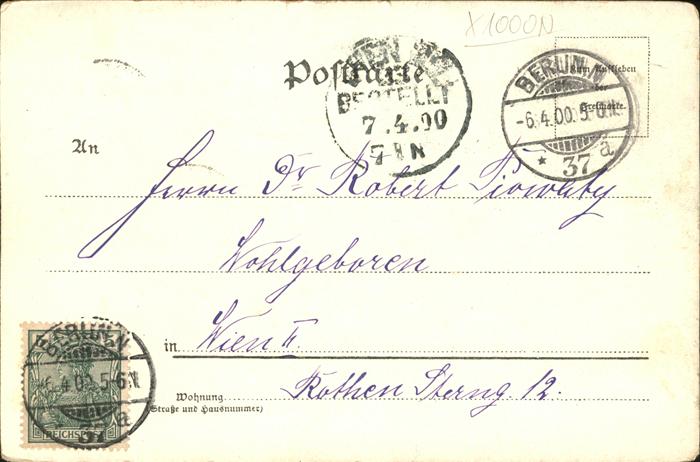 X1000N
Postkarte
WIEN
BESTELLT
7.4.00
7 8 N
BERLIN N
-6.4.00. 5-6.N.
* 37 a
Zum Aufkleben
der
Freimarke.
An
Herrn Dr Robert
Wohlgeboren
in Wien II.
Wohnung
(Straße und Hausnummer)
Rothen Sterng 12.
BERLIN N
-6.4.00. 5-6.N
37 a
REICHSPOST